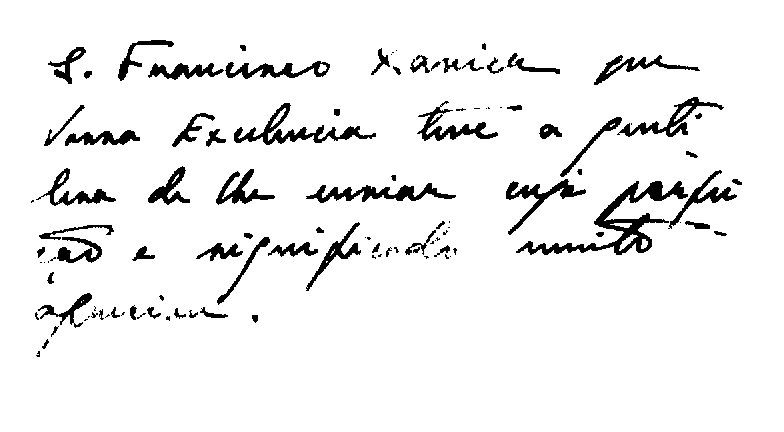 S. Francisco Xavier que
Vossa Excelência teve a genti
leza de lhe enviar cuja perfei
ção e significado muito
apreciou.